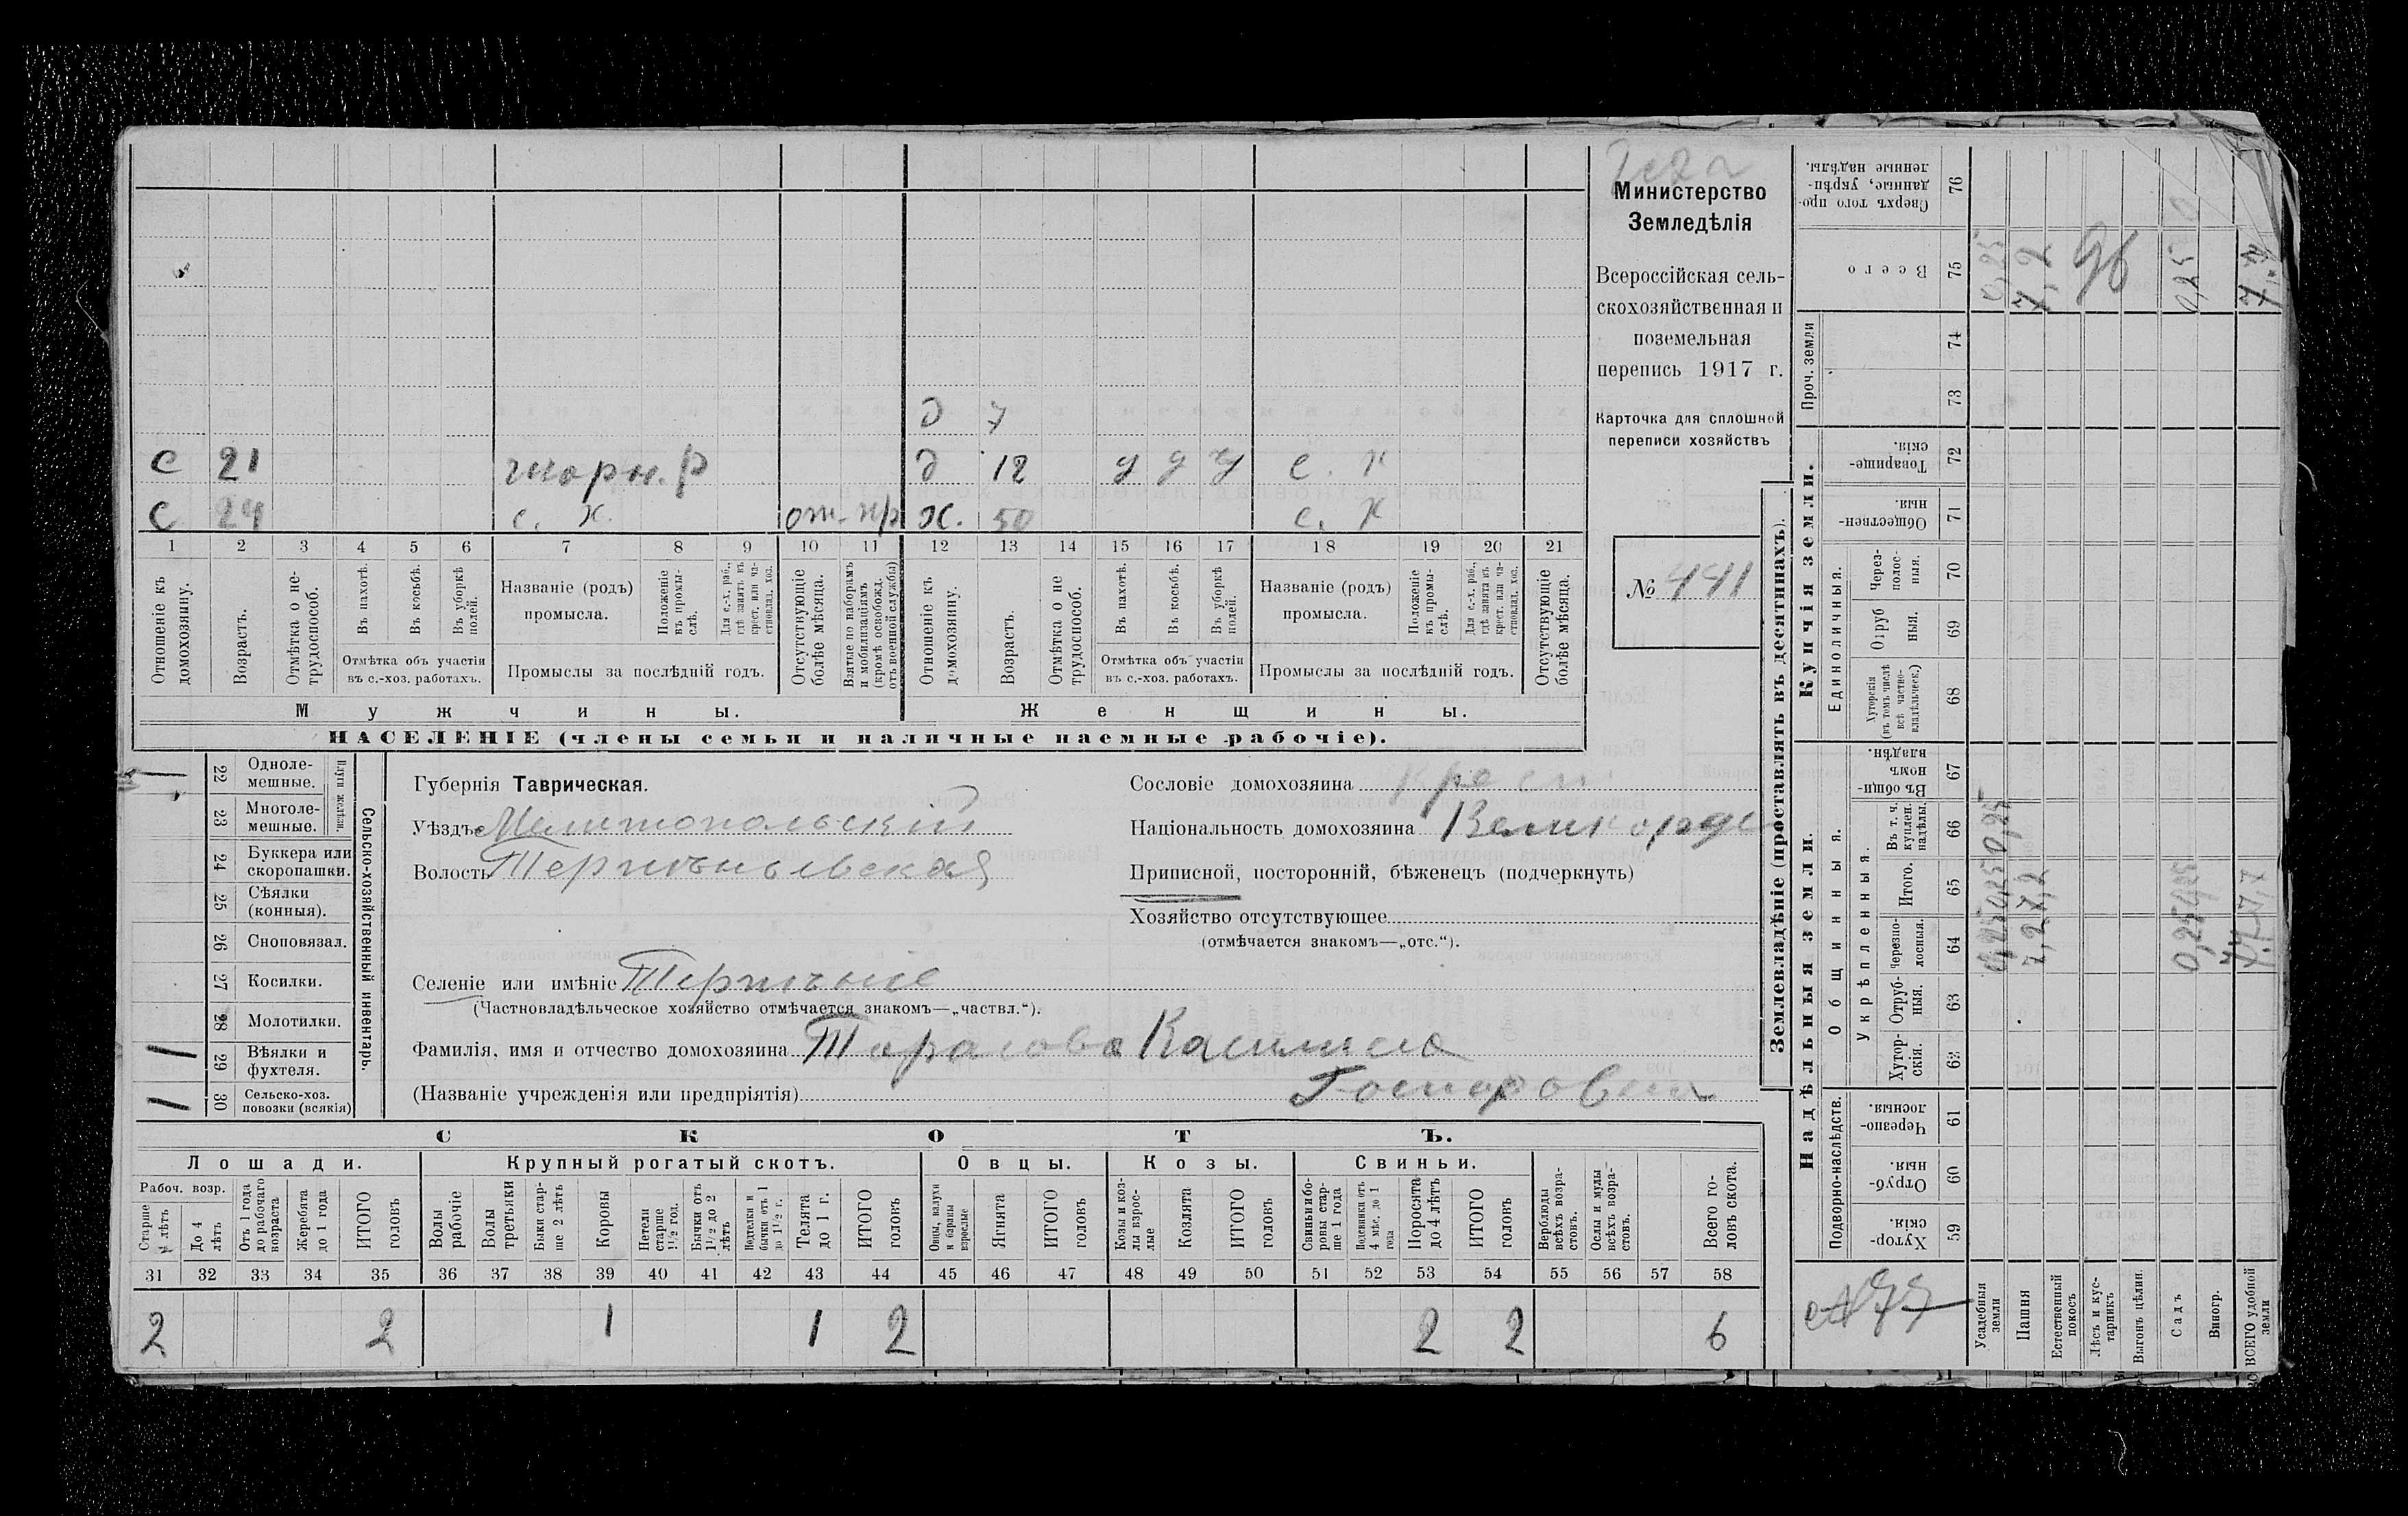 д 7
С 21 шорн. р д 12 у у у с. х
С 24 с. х. х. 50 с. х
1 2 3 4 5 6 7 8 9 10 11 12 13 14 15 16 17 18 19 20 21
Отношеніе къ домохозяину.
Возрастъ.
Отмѣтка о не-трудоспособ.
Въ пахотѣ.
Въ косьбѣ.
Въ уборкѣ полей.
Отмѣтка объ участіи въ с.-хоз. работахъ.
Названіе (родъ) промысла.
Положеніе въ промы-слѣ.
Для с.-х. раб., гдѣ занятъ въ крест. или ча-стновлад. хоз.
Промыслы за послѣдній годъ.
Отсутствующіе болѣе мѣсяца.
Взятые по наборамъ и мобилизаціямъ (кромѣ освобожд. отъ военной службы)
Отношеніе къ домохозяину.
Возрастъ.
Отмѣтка о не трудоспособ.
Въ пахотѣ.
Въ косьбѣ.
Въ уборкѣ полей.
Отмѣтка объ участіи въ с.-хоз. работахъ.
Названіе (родъ) промысла.
Положеніе въ промы-слѣ.
Для с.-х. раб., гдѣ занята въ крест. или ча-стновлад. хоз.
Промыслы за послѣдній годъ.
Отсутствующіе болѣе мѣсяца.
Мужчины. Женщины.
НАСЕЛЕНІЕ (члены семьи и наличные наемные рабочіе).
Министерство
Земледѣлія
Всероссійская сель-
скохозяйственная и
поземельная
перепись 1917 г.
Карточка для сплошной
переписи хозяйствъ
№ 441
22 Одноле-мешные.
23 Многоле-мешные.
Плуги желѣзн.
24 Буккера или скоропашки.
25 Сѣялки (конныя).
26 Сноповязал.
27 Косилки.
28 Молотилки.
1 29 Вѣялки и фухтеля.
1 30 Сельско-хоз. повозки (всякія)
Сельско-хозяйственный инвентарь.
Губернія Таврическая.
Уѣздъ Мелитопольскій
Волость Терпѣньевская
Селеніе или имѣніе Терпѣніе
(Частновладѣльческое хозяйство отмѣчается знакомъ—„частвл.“).
Фамилія, имя и отчество домохозяина Тарасова Василиса
(Названіе учрежденія или предпріятія)
Сословіе домохозяина крест.
Національность домохозяина Великорус
Приписной, посторонній, бѣженецъ (подчеркнуть)
Хозяйство отсутствующее
(отмѣчается знакомъ—„отс.“).
СКОТЪ.
Лошади. Крупный рогатый скотъ. Овцы. Козы. Свиньи.
Рабоч. возр.
Старше 4 лѣтъ
До 4 лѣтъ
Отъ 1 года до рабочаго возраста
Жеребята до 1 года
ИТОГО головъ
Волы рабочіе
Волы третьяки
Быки стар-ше 2 лѣтъ
Коровы
Нетели старше 1 1/2 год.
Бычки отъ 1 1/2 до 2 лѣтъ
Подтелки и бычки отъ 1 до 1 1/2 г.
Телята до 1 г.
ИТОГО головъ
Овцы, валухи и бараны взрослые
Ягнята
ИТОГО головъ
Козы и коз-лы взрос-лые
Козлята
ИТОГО головъ
Свиньи и бо-ровы стар-ше 1 года
Подсвинки отъ 4 мѣс. до 1 года
Поросята до 4 лѣтъ
ИТОГО головъ
Верблюды всѣхъ возра-стовъ.
Ослы и мулы всѣхъ возра-стовъ.
Всего го-ловъ скота.
31 32 33 34 35 36 37 38 39 40 41 42 43 44 45 46 47 48 49 50 51 52 53 54 55 56 57 58
2 2 1 1 2 2 2 6
Землевладѣніе (проставлять въ десятинахъ).
Надѣльныя земли. Купчія земли. Проч. земли
Подворно-наслѣдств. Общинныя. Единоличныя.
Укрѣпленныя.
Хутор-скія. 59
Отруб-ныя. 60
Черезпо-лосныя. 61
Хутор-скія. 62
Отруб-ныя. 63
Черезпо-лосныя. 64
Итого. 65
Въ т. ч. куплен. надѣлы. 66
Въ общин-номъ владѣн. 67
Хуторскія (въ томъ числѣ всѣ частно-владѣльческ.) 68
Отруб ныя. 69
Через-полос-ныя. 70
Обществен-ныя. 71
Товарище-скія. 72
73
74
Всего 75
Сверхъ того про-данные, укрѣп-ленные надѣлы. 76
Усадебныя земли 0,25 0,25 0,25 0,25
Пашня 7,2 7,2 7,2
Естественный покосъ
Лѣсъ и кус-тарникъ
Выгонъ цѣлин.
Садъ 0,25 0,25 0,25
Виногр.
ВСЕГО удобной земли 7,7 7,7 7,7